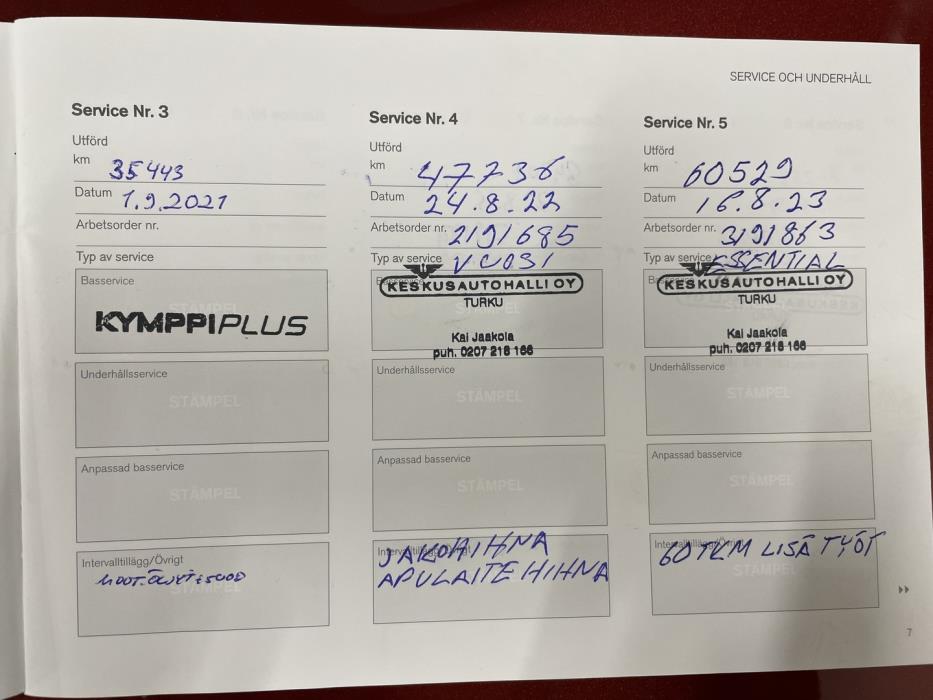 SERVICE OCH UNDERHÅLL
Service Nr. 3
Utförd
km 35443
Datum 1.9.2021
Arbetsorder nr.
Typ av service
Basservice
KYMPPIPLUS
Underhållsservice
STÄMPEL
Anpassad basservice
STÄMPEL
Intervalltillägg/Övrigt
STÄMPEL
Service Nr. 4
Utförd
km 47736
Datum 24.8.22
Arbetsorder nr. 2191685
Typ av service
KESKUSAUTOHALLI OY
TURKU
Kai Jaakola
puh. 0207 218 166
Underhållsservice
STÄMPEL
Anpassad basservice
STÄMPEL
Intervalltillägg/Övrigt
JAKOHIHNA
APULAITE HIHNA
Service Nr. 5
Utförd
km 60529
Datum 16.8.23
Arbetsorder nr. 3191863
Typ av service ESSENTIAL
KESKUSAUTOHALLI OY
TURKU
Kai Jaakola
puh. 0207 218 166
Underhållsservice
STÄMPEL
Anpassad basservice
STÄMPEL
Intervalltillägg/Övrigt
60 TKM LISÄ TYÖT
STÄMPEL
7